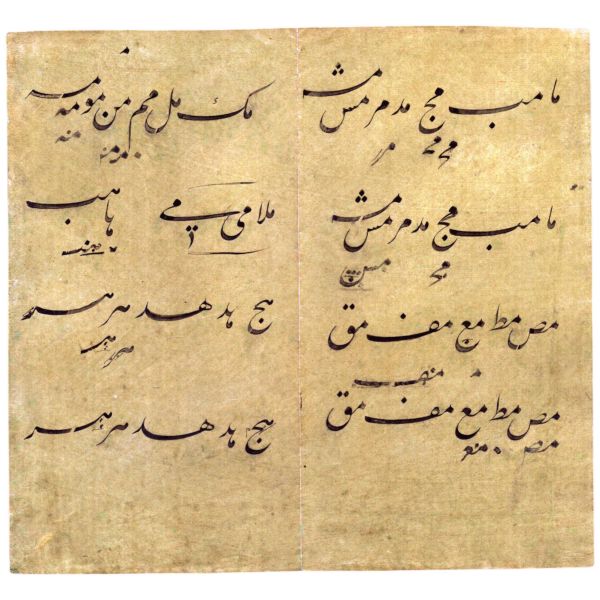 ما مب مج مد مر مس مش
مح مح مر
ما مب مج مد مر مس مش
مح
مص مط مع مف مق
مص مط مع مف مق
مص مع
مک مل مم من مو مه
مه
ملا می مے ها هب
هج هد هد هر هس
هر
هج هد هد هر هس